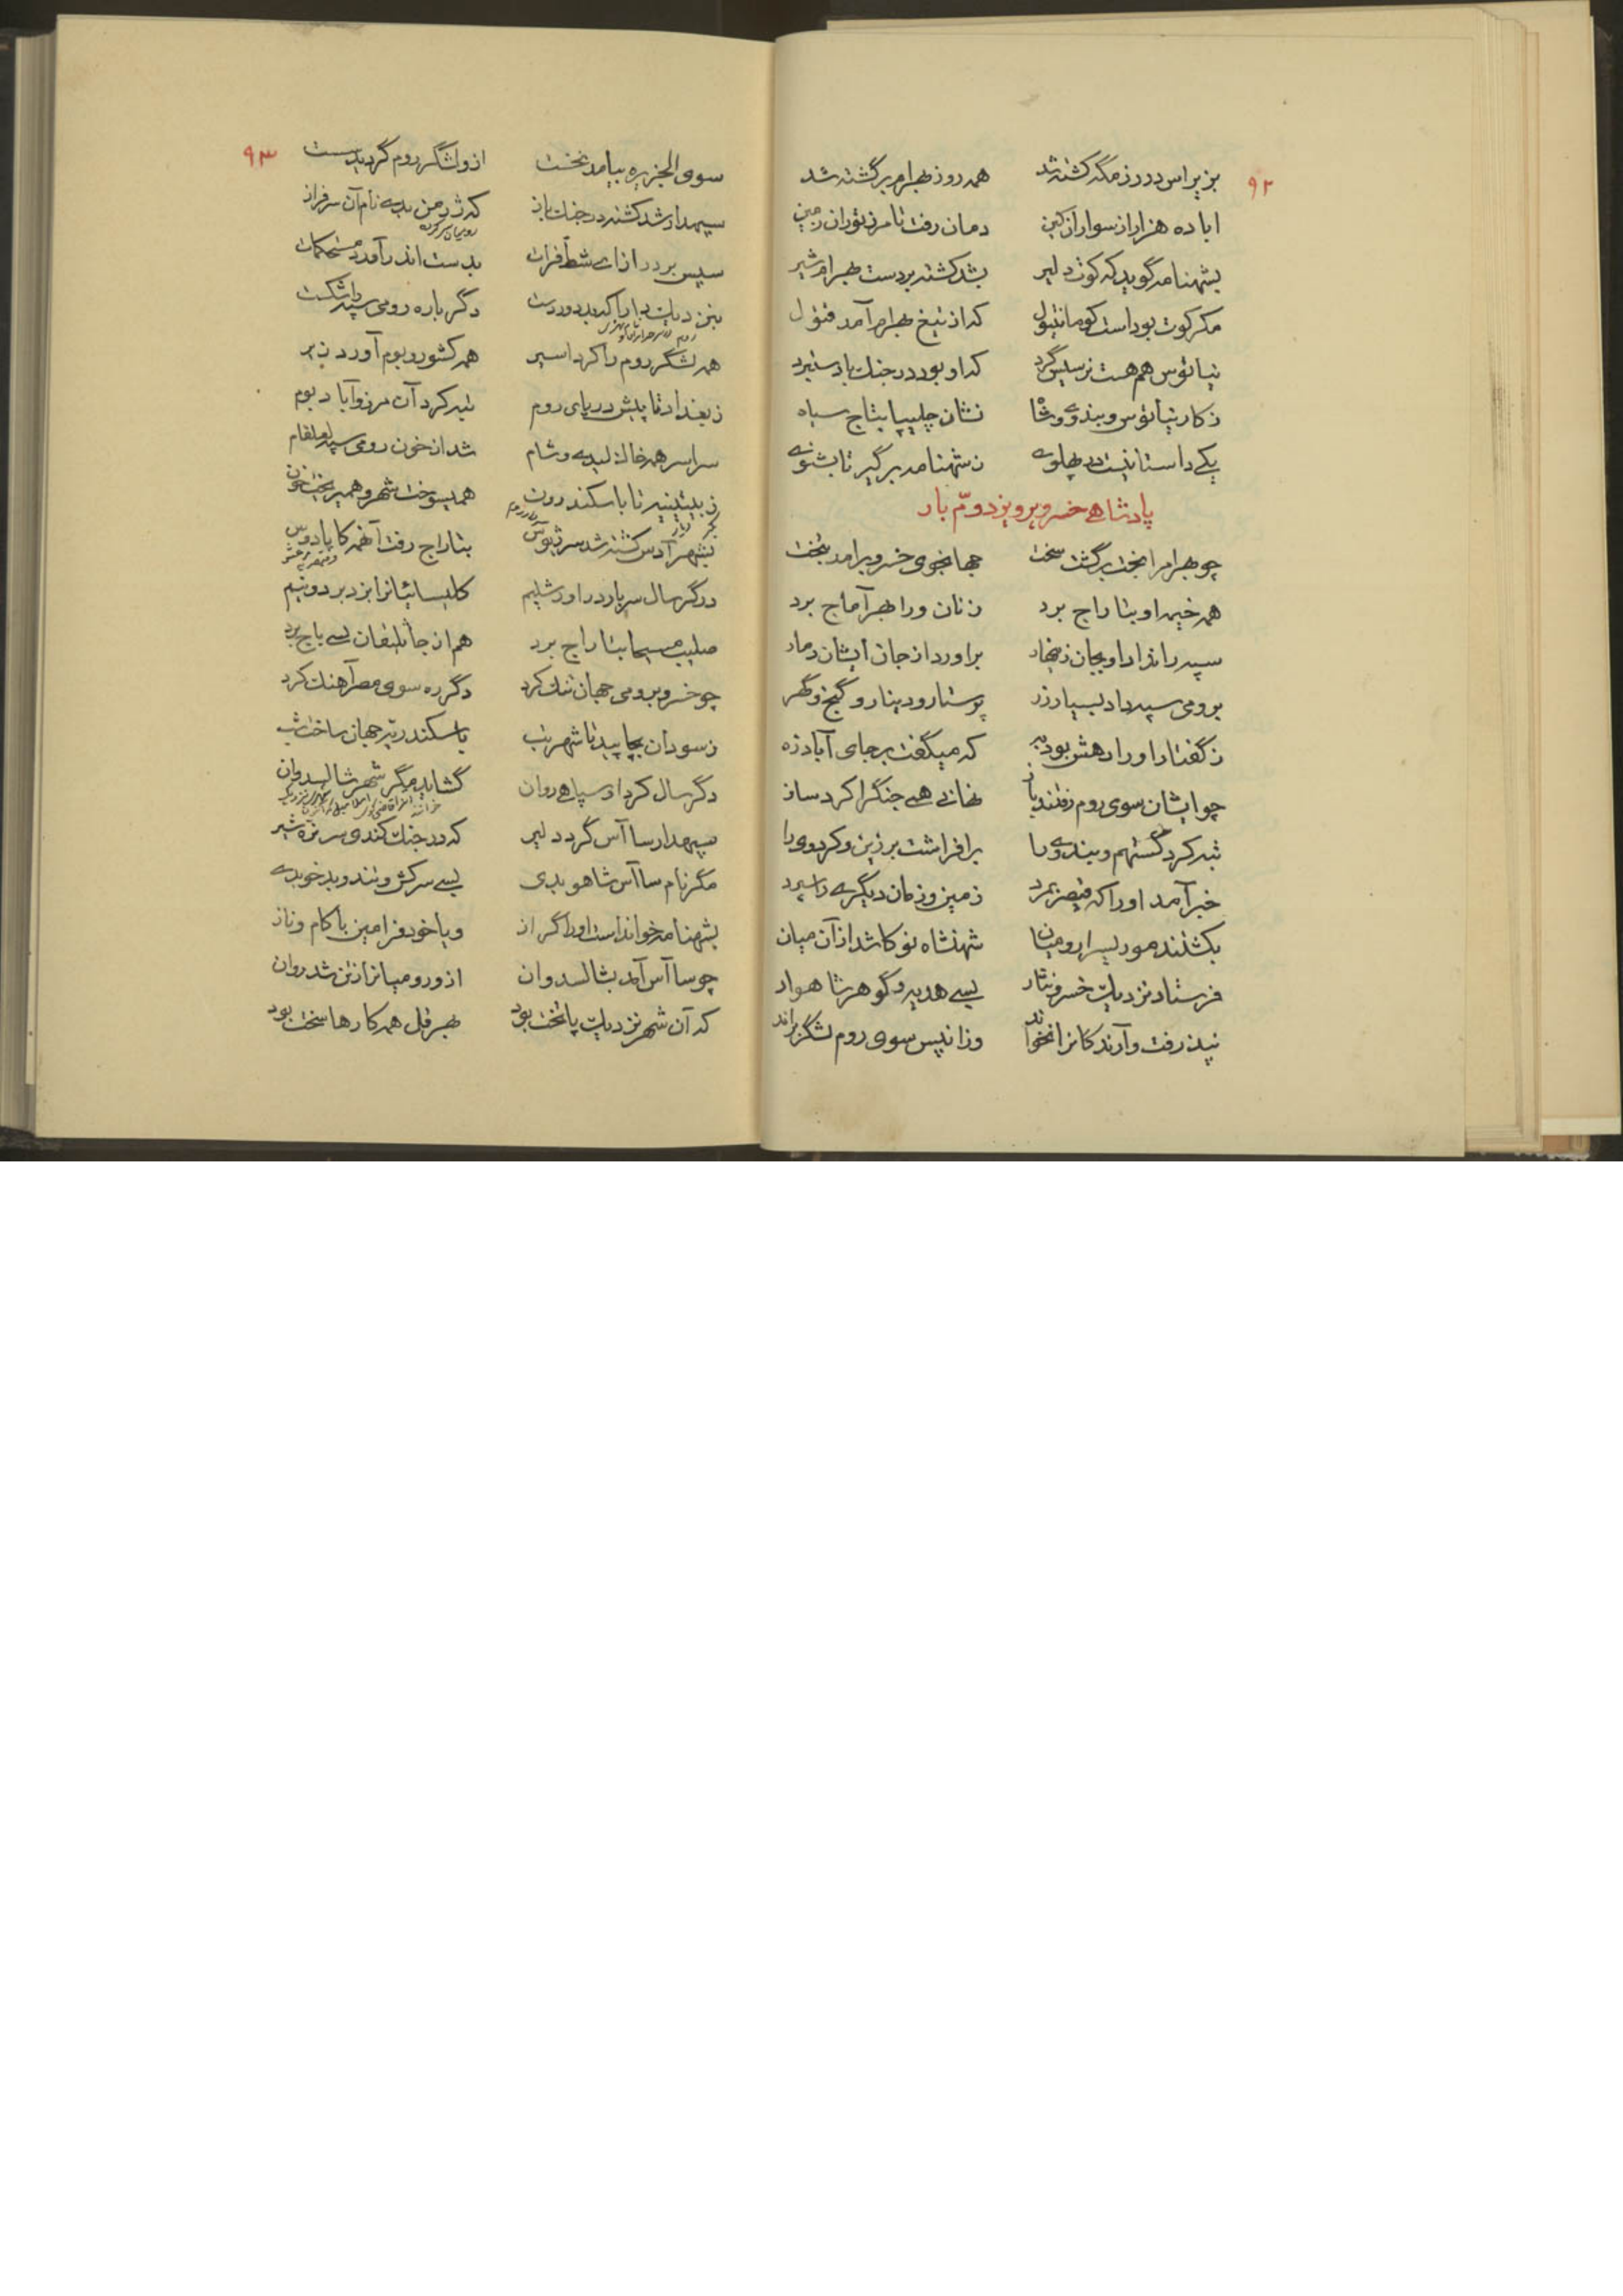 ۹۲
بزیر اس در رزمگه کشته شد همه روز بهرام برگشته شد
ابا ده هزار از سواران کین دمان رفت تا مرز توران زمین
بشهنامه گوید که کوت دلیر بشد کشته بر دست بهرام شیر
مگر کوت بود است کومانتیول که از تیغ بهرام آمد قتول
نیاتوس هم هست نرسیس گرد که او بود در جنگ با دستبرد
ز کار نیاتوس و بندوی و شاه نشان چلیپا بتاج سیاه
یکی داستانیست در پهلوی ز شهنامه برگیر تا بشنوی
پادشاهی خسرو پرویز دوّم بار
چو بهرام را بخت برگشت سخت جهانجوی خسرو برامد بتخت
همه خیمه او بتاراج برد زنان ورا بهر آماج برد
سپه راند او بجان زینهار براورد از جان ایشان دمار
برومی سپه داد بسیار زر پرستار و دینار و گنج و گهر
ز گفتار او را دهش بود به که میگفت بر جای آباد زه
چو ایشان سوی روم رفتند باز نهانی همی جنگ را کرد ساز
تبه کرد گستهم و بندوی را برافراشت برزین و گردوی را
خبر آمد او را که قیصر بمرد زمین و زمان دیگری را سپرد
بکشتند موریس را رومیان شهنشاه نو کا شد از آن میان
فرستاد نزدیک خسرو نثار بسی هدیه و گوهر شاهوار
نپذرفت و آرندگان را نخواند وزانپس سوی روم لشگر براند
۹۳
سوی الجزیره بیامد نخست ازو لشگر روم گردید سست
سپهدار شد کشته در جنگ باز که ژرمن بدی نام آن سرفراز
سپس بر در ازای شط فرات بدست اندرآمد ورا مستحکمات
بنزدیک دارا که بد دوردست دگر باره رومی سپه را شکست
همه لشگر روم را کرد اسیر همه کشور و بوم آورد زیر
ز بغداد تا پیش دریای روم تبه کرد آن مرز و آباد بوم
سراسر همه خاک لیدی و شام شد از خون رومی سپه لعلفام
ز بیتینیه تا باسکندرون همیسوخت شهر و همیریخت خون
بشهر آدس کشته شد سرنتوس بتاراج رفت آنهمه کاپادوس
دگر سال سر باره در اورشلیم کلیسائیان را بزد بر دو نیم
صلیب مسیحا بتاراج برد هم از جاثلیقان بسی باج برد
چو خسرو برومی جهان تنگ کرد دگر ره سوی مصر آهنگ کرد
ز سودان بچاپید تا شهر تب باسکندریّه جهان ساخت شب
دگر سال کرد او سپاهی روان گشاید مگر شهر شالسدوان
سپهدار ساآس گرد دلیر که در جنگ کندی سر نرّه شیر
مگر نام ساآس شاهو بدی بسی سرکش و تند و بدخو بدی
بشهنامه خوانداست او را گراز و یا خود فرامین با کام و ناز
چو ساآس آمد بشالسدوان ازو رومیان را ز تن شد روان
که آن شهر نزدیک پاتخت بود بهرقل همه کارها سخت بود